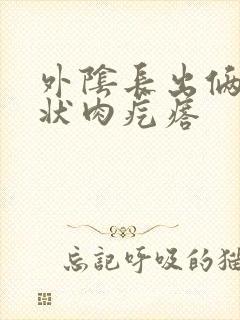 外陰長出俩
狀肉疙瘩
忘記呼吸的猫